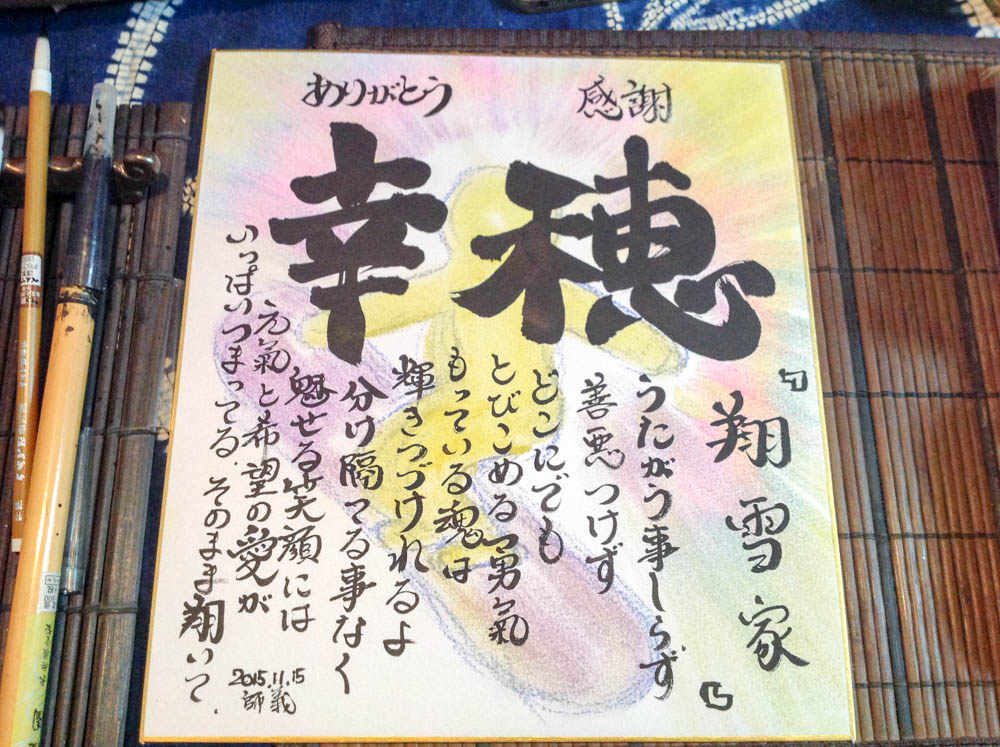 ありがとう 感謝
幸穂
「翔雪家」
うたがう事しらず
善悪つけず
どこにでも
とびこめる勇氣
もっている魂は
輝きつづけれるよ
分け隔てる事なく
魅せる笑顔には
元氣と希望の愛が
いっぱいつまってる.そのまま翔いて.
2015.11.15
師義